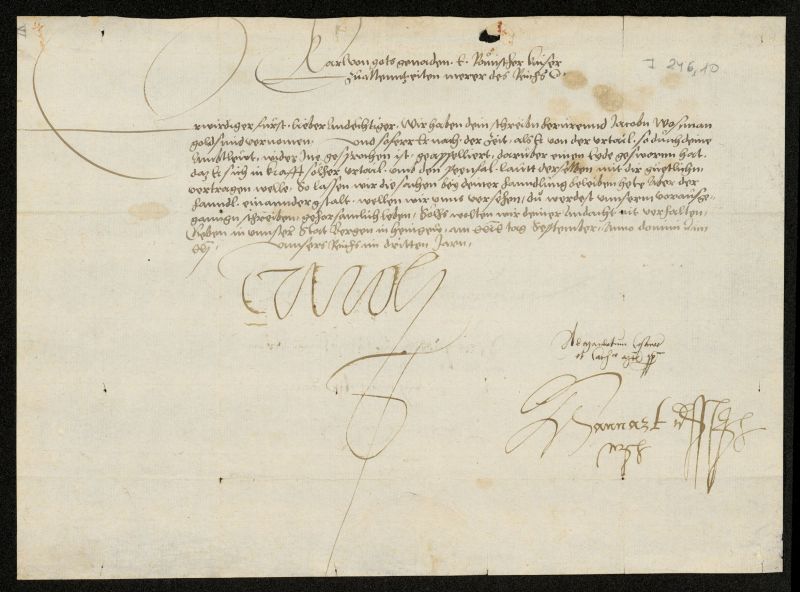 Karl von gots genaden E. Römischer kaiser
Zu allenntzeiten merer des Reichs
I 246,10
Erwirdiger fürst lieber Andechtiger. Wir haben dein schreiben berüerennd Jacoben
goldsmid vernomen. Und sofern Er nach der Zeit, als Er von der urtail, so durch deine
Ambtleüt, wider Ine gesprochen ist, geappelliert, darüber einen Eyde gesworen hat,
daz Er sich in krafft solher urtail, und den peenfal laut derselben mit dir güetlichen
vertragen welle. So lassen wir die sachen bey deiner hanndlung beleiben, hete aber der
hanndl ein annder gstalt, wellen wir unns versehen, du werdest unnserm vorausge-
ganngn schreiben gehorsamlich leben, Solhs wolten wir deiner Andacht nit verhalten,
Geben in unnser Stat Bergen in henigew, am tag September, Anno domini
xxj unnsers Reichs im dritten Jarn.
Carolus
Ad mandatum
Hannart